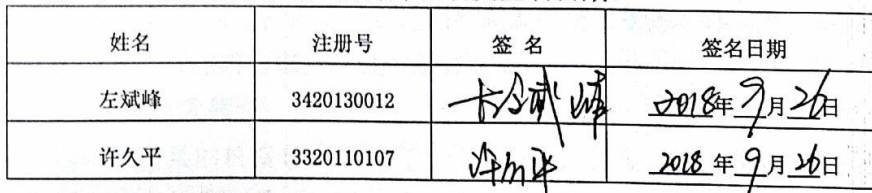 姓名 注册号 签 名 签名日期
左斌峰 3420130012 左斌峰 2018年9月26日
许久平 3320110107 许久平 2018年9月26日